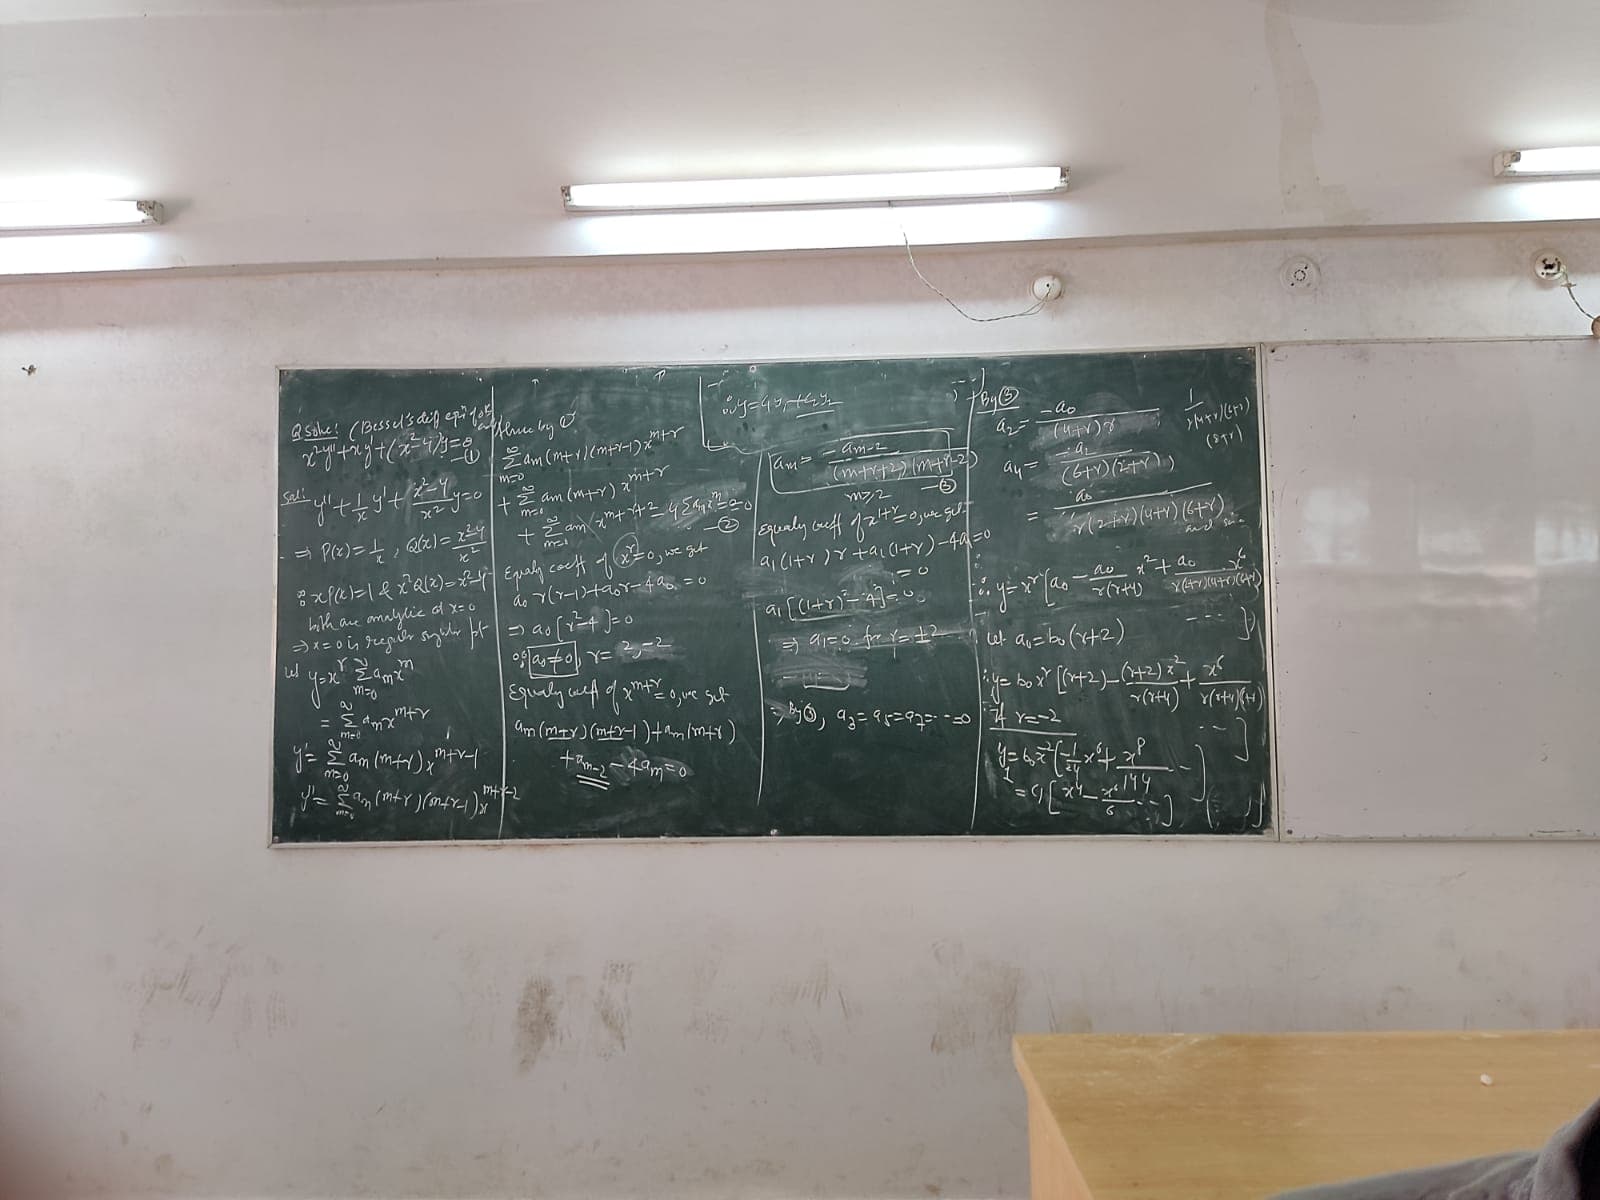 Q Solve: (Bessel's diff eqn of order
x²y''+xy'+(x²-4)y=0 -①
Sol: y''+1/x y'+(x²-4)/x² y=0
⇒ P(x)=1/x, Q(x)=(x²-4)/x²
∵ xP(x)=1 & x²Q(x)=x²-4
both are analytic at x=0
⇒ x=0 is regular singular pt
Let y=x^r ∑_{m=0}^∞ a_m x^m
= ∑_{m=0}^∞ a_m x^{m+r}
y'= ∑_{m=0}^∞ a_m (m+r) x^{m+r-1}
y''= ∑_{m=0}^∞ a_m (m+r)(m+r-1) x^{m+r-2}
by ①
∑_{m=0}^∞ a_m (m+r)(m+r-1) x^{m+r}
+ ∑_{m=0}^∞ a_m (m+r) x^{m+r}
+ ∑_{m=0}^∞ a_m x^{m+r+2} -4∑ =0
-②
Equaly coeff of x^r=0, we get
a₀ r(r-1)+a₀r-4a₀=0
⇒ a₀[r²-4]=0
∵ a₀≠0, r=2,-2
Equaly coeff of x^{m+r}=0, we get
a_m (m+r)(m+r-1)+a_m(m+r)
+a_{m-2} -4a_m=0
∴ y=c₁y₁+c₂y₂
a_m= -a_{m-2}/((m+r+2)(m+r-2))
m≥2 -③
Equaly coeff of x^{1+r}=0, we get
a₁(1+r)r+a₁(1+r)-4a₁=0
=0
a₁[(1+r)²-4]=0
⇒ a₁=0 for r=±2
⇒ By ③, a₃=a₅=a₇=--=0
By ③
a₂= -a₀/((4+r)r)
a₄= -a₂/((6+r)(2+r))
= a₀/(r(2+r)(4+r)(6+r))
∴ y=x^r[a₀ - a₀/(r(r+4)) x²+
---]
Let a₀=b₀(r+2)
∴ y=b₀x^r[(r+2)-(r+2)x²/(r(r+4))+
--]
If r=-2